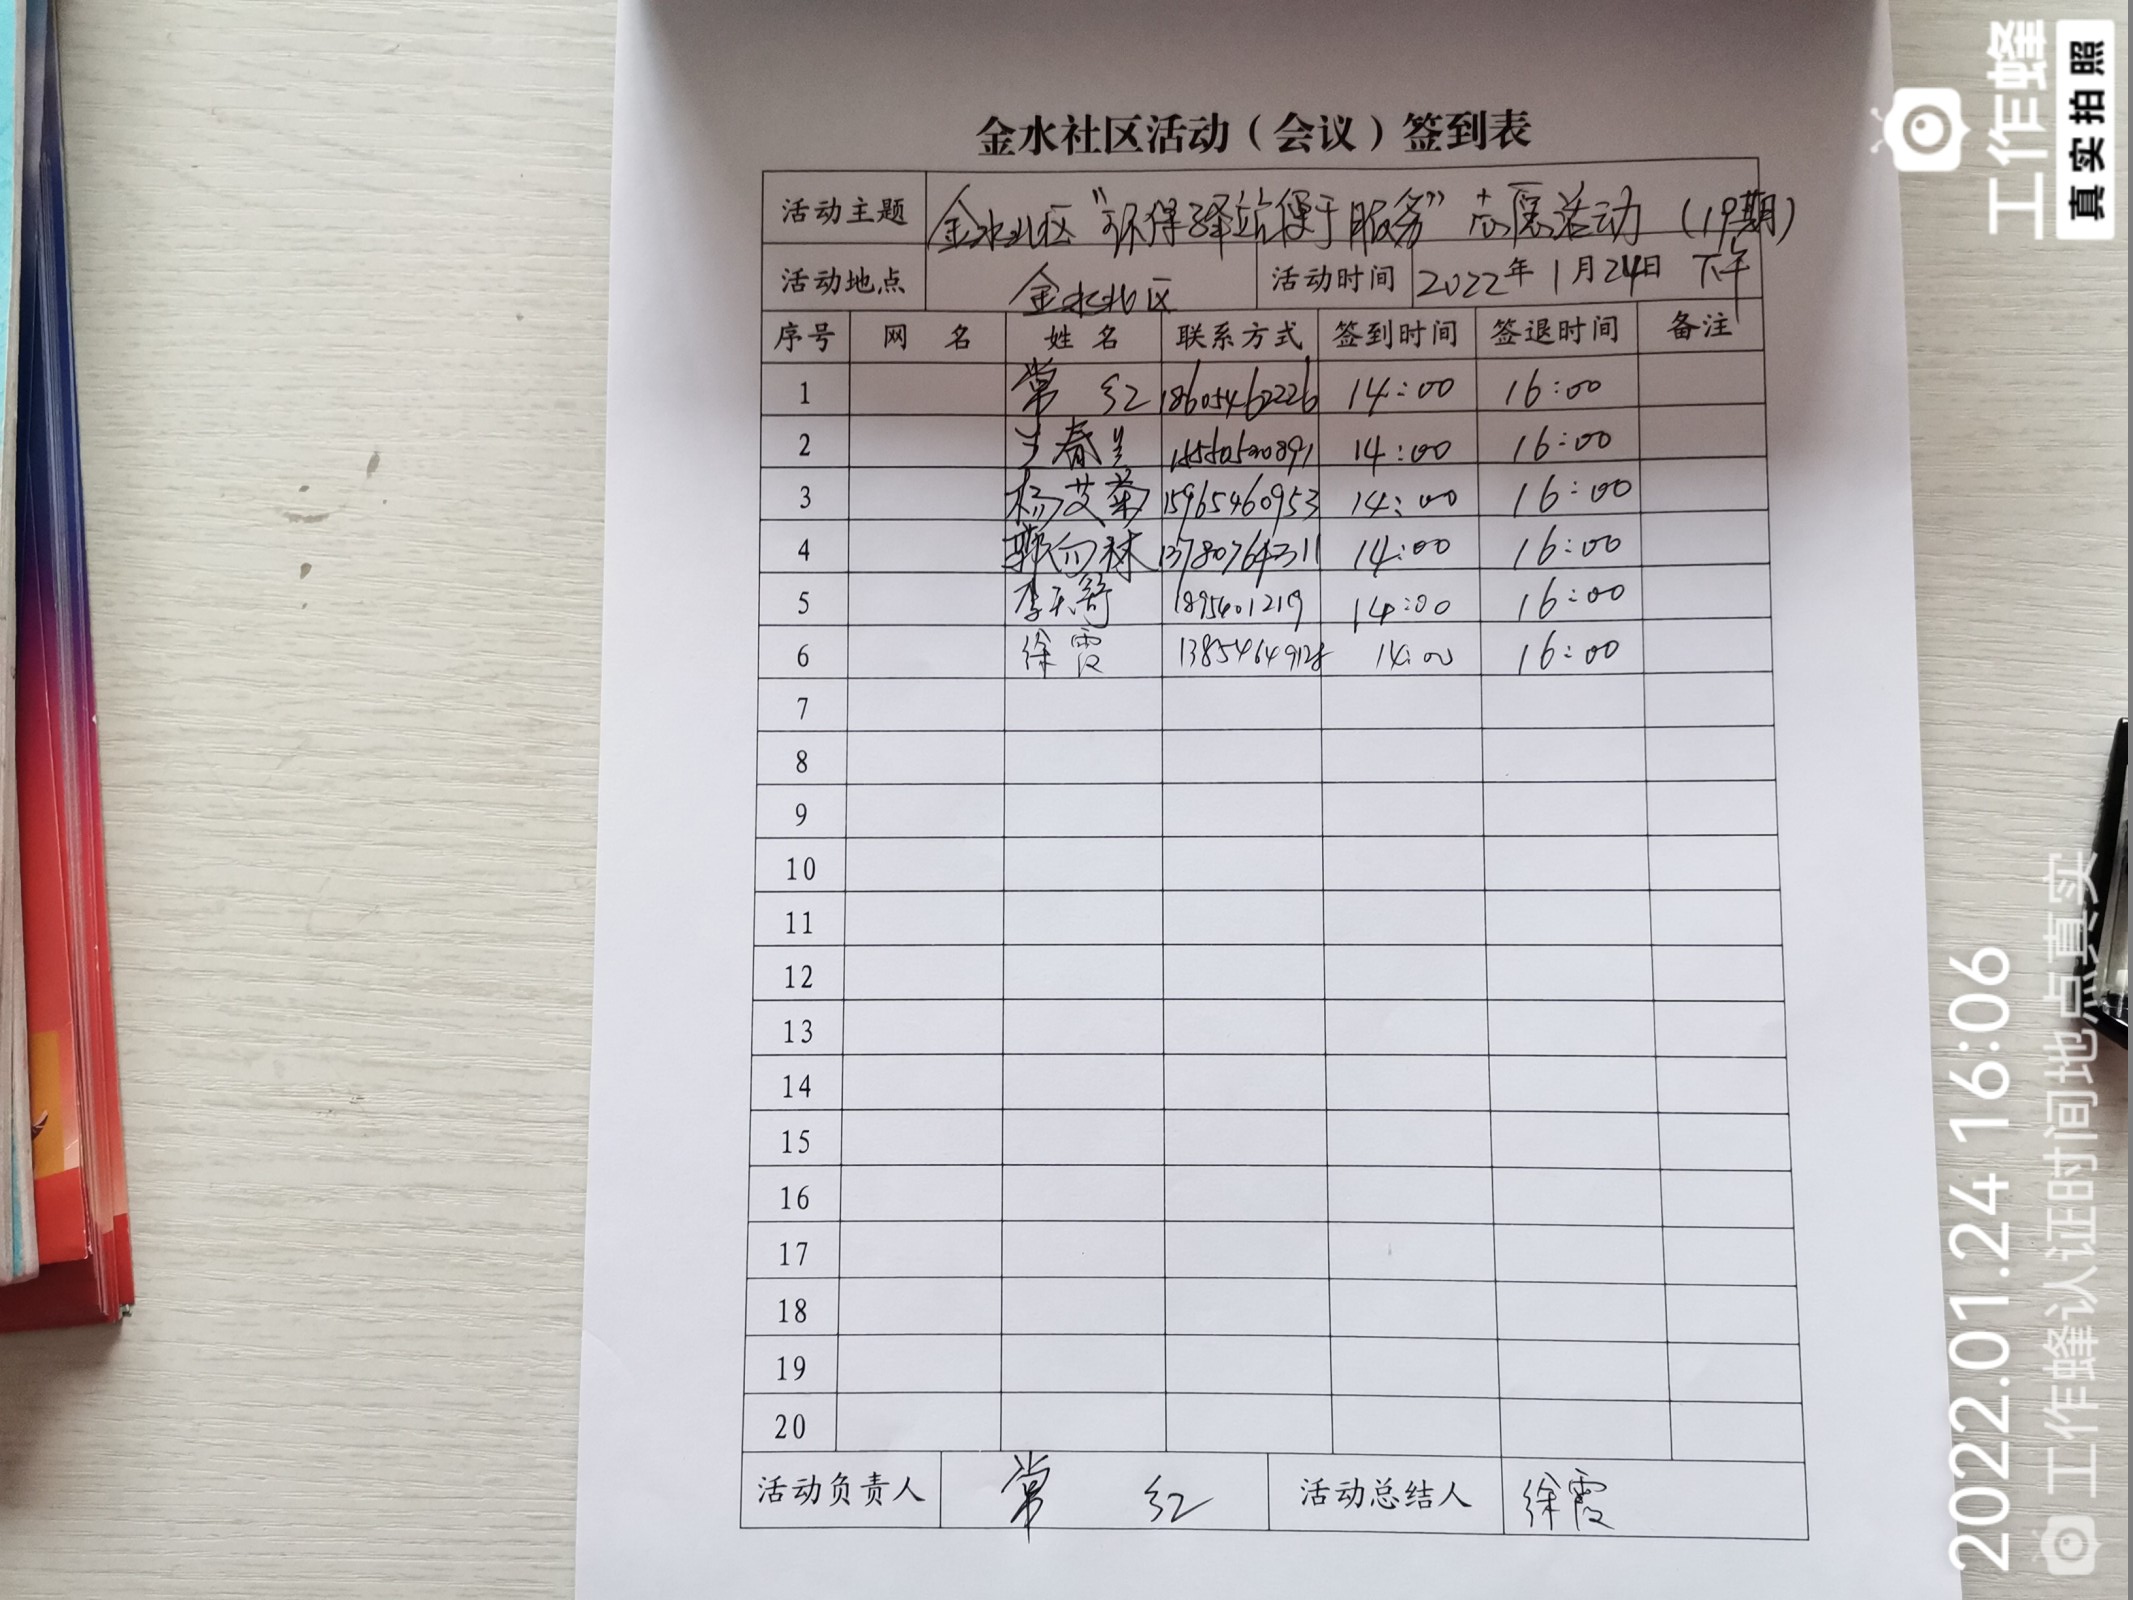 金水社区活动（会议）签到表
活动主题 金水社区“环保驿站便于服务”志愿活动（19期）
活动地点 金水社区 活动时间 2022年1月24日 下午
序号 网 名 姓 名 联系方式 签到时间 签退时间 备注
1 常 红 18605462226 14:00 16:00
2 王春兰 14:00 16:00
3 杨艾菊 15965460953 14:00 16:00
4 郭向林 13780764311 14:00 16:00
5 李天舒 14:00 16:00
6 徐霞 13854649128 14:00 16:00
7
8
9
10
11
12
13
14
15
16
17
18
19
20
活动负责人 常 红 活动总结人 徐霞
工作蜂
真实拍照
2022.01.24 16:06
工作蜂认证时间地点真实